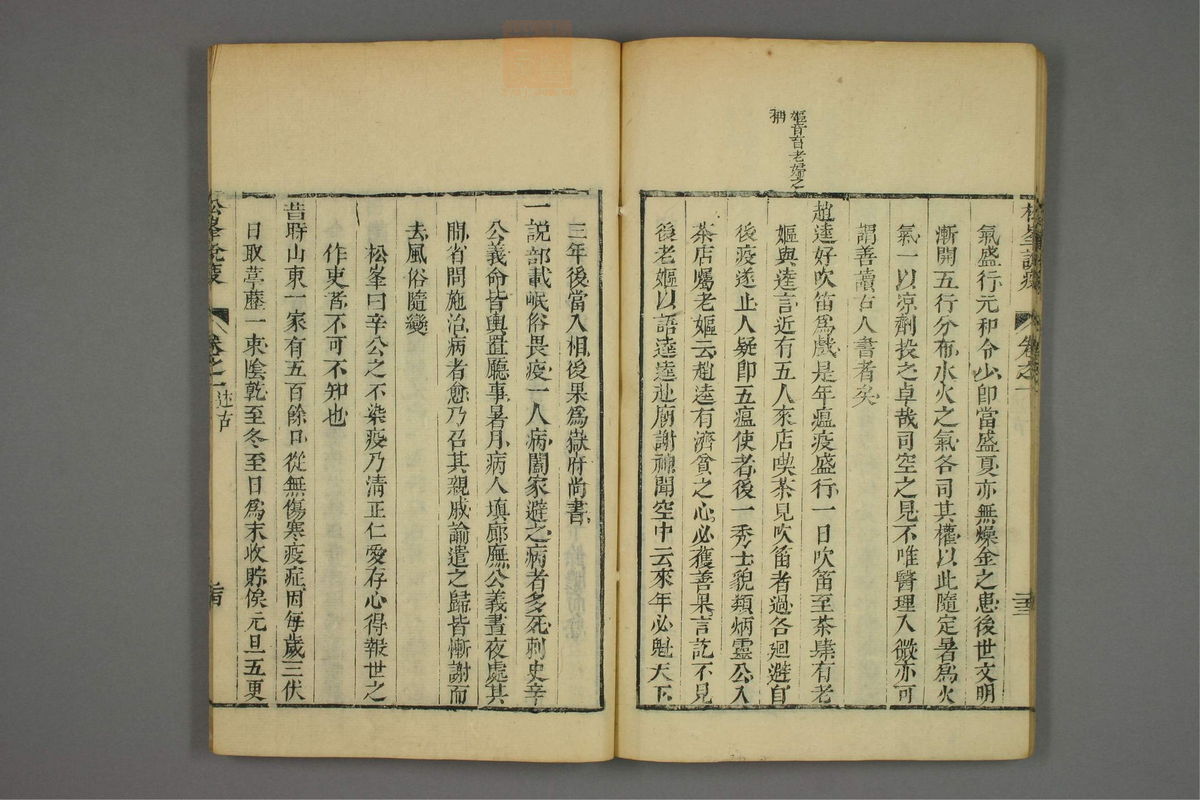 嫗音育老婦之
稱
松峯說疫
卷之一
二三
氣盛行元和令少卽當盛夏亦無燥金之患後世文明
漸開五行分布水火之氣各司其權以此隨定暑爲火
氣一以凉劑投之卓哉司空之見不唯醫理入微亦可
謂善讀古人書者矣
趙逵好吹笛爲戲是年瘟疫盛行一日吹笛至茶肆有老
嫗與逵言近有五人來店喫茶見吹笛者過各廻避自
後疫遂止人疑卽五瘟使者後一秀士貌類炳靈公入
茶店囑老嫗云趙逵有濟貧之心必獲善果言訖不見
後老嫗以語逵逵赴廟謝神聞空中云來年必魁天下
三年後當入相後果爲嶽府尚書
一說部載岷俗畏疫一人病闔家避之病者多死刺史辛
公義命皆輿置廳事暑月病人塡廊廡公義晝夜處其
間省問施治病者愈乃召其親戚諭遣之歸皆慚謝而
去風俗隨變
松峯曰辛公之不染疫乃清正仁愛存心得報世之
作吏者不可不知也
昔時山東一家有五百餘口從無傷寒疫症因每歲三伏
日取葶藶一束陰乾至冬至日爲末收貯俟元旦五更
松峯說疫
卷之一
述古